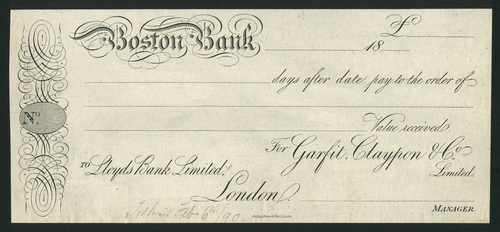 Boston Bank
£
18
days after date pay to the order of
No.
Value received
For Garfit, Claypon & Co.
To Lloyds Bank Limited, Limited.
London.
Feb 6th/90
Manager.